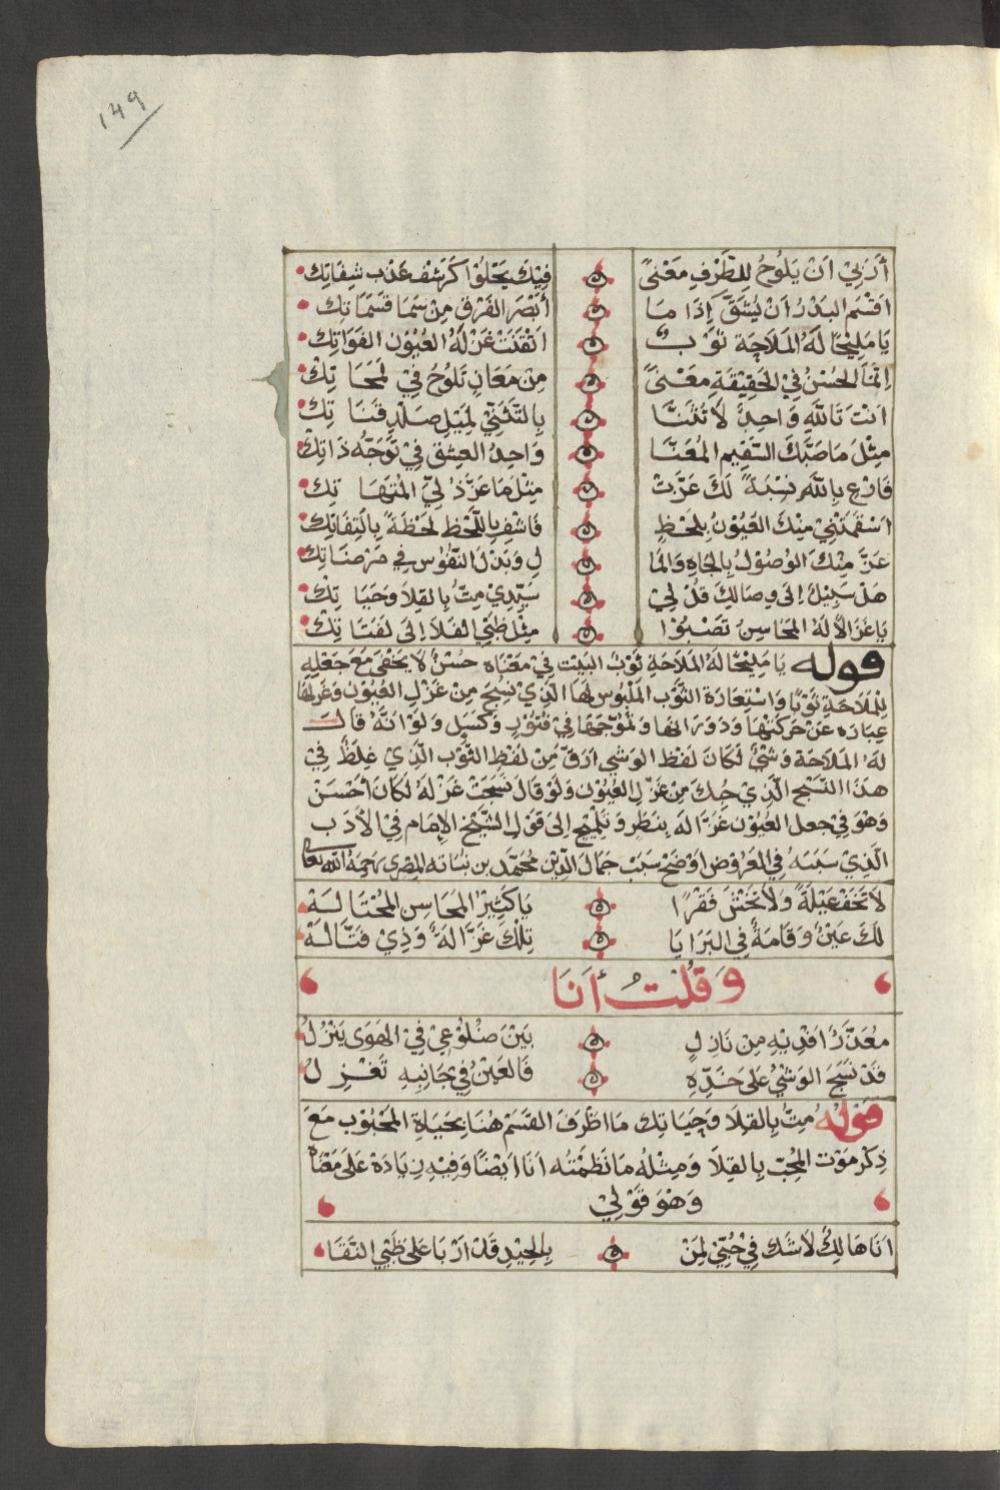 149
أَدَبِيْ اَنْ يَلُوْحُ لِلطَّرْفِ مَعْنًى فِيْكَ يَحْلُوْا كَرَشْفِ عَذْب شِفَاتِك
اَقْسَم البَدْرُ اَنْ يُشَقَّ إِذَا مَا أَبْصَرَ الفَرْقَ مِنْ سَمَا قَسَمَا تِك
يَا مَلِيْحًا لَهُ المَلَاحَة ثَوْبٌ اَتْقَنَتْ غَزْلَهُ العُيُوْن الفَوَاتِك
اِنَّمَا الحُسْنُ فِي الحَقِيْقَةِ مَعْنًى مِنْ مَعَانٍ تَلُوْحُ فِيْ لَمَحَا تِك
اَنْتَ تَاللهِ وَاحِدٌ لَا تُثَنَّا بِالتَّثَنِّيْ لِمَيْلِ صَلْدِ قَنَا تِك
مِثْلَ مَا صَبَّكَ السَّقِيم المُعَنَّا وَاحِدُ العِشْقِ فِيْ تَوَجُّه ذَاتِك
فَارْعِ بِاللهِ نِسْبَةً لَكَ عَزَّتْ مِثْلَ مَا عَزَّ ذُ لِيْ المُنتَهَا تِك
اَسْقَمَتْنِيْ مِنْكَ العُيُوْنُ بِلَحْظٍ فَاشْفِ بِاللَّحْظ لَحْظَةً بِالْتِفَاتِك
عَزَّ مِنْكَ الوُصُوْلُ بِالجَاهِ وَالمَا لِ وَبَذْلَ النُّفُوْس فِي مَرْضَاتِك
هَلْ سَبِيْلٌ اِلَى وِصَالِكَ قُلْ لِيْ سَيِّدِيْ مِتُّ بِالقِلَا وَحَيَا تِك
يَا غَزَالاً لَهُ المَحَاسِنُ تَصْبُوْا مِثْلَ ظَبْيِ الفَلَا اِلَى لَفَتَا تِك
قوله يَا مَلِيْحًا لَهُ المَلَاحَةِ ثَوْبُ البَيْت فِيْ مَعْنَاه حُسْنٌ لَا يَخْفَى مَعَ جَعْلِهِ
لِلْمَلَاحَةِ ثَوْبًا وَاسْتِعَارَة الثَّوْب المَلْبُوس لهَا الَّذِيْ نُسِجَ مِنْ غَزْلِ العُيُوْن وَغَزْلهَا
عِبَارَه عَنْ حَرَكَتِهَا وَدَوَرَانِهَا وَتمَوّجهَا فِيْ فُتُوْرٍ وَكَسَلٍ وَلَوْ اَنَّهُ قَالَـــ
لَهُ المَلَاحَة وَشْيٌ لَكَانَ لَفْظ الوَشْيِ اَرَقّ مِنْ لَفْظِ الثَّوْب الَّذِيْ غِلظٌ فِيْ
هَذَا النَّسْجِ الَّذِيْ حُكَ مِنْ غَزْلِ العُيُوْن وَلَوْ قَالَ نَسَجَتْ غَزْلهُ لَكَانَ اَحْسَنْ
وَهُوَ فِيْ جعل العُيُوْن غَزَّالَه يَنظرُ وَيَلْمَحُ اِلَى قَوْلِ الشَّيْخ الإمَام فِيْ الاَدَب
الَّذِيْ سَبَبَهُ فِي العَرُوْض اَوْضَحُ سَبَبْ جَمَال الدِّيْن مُحَمَّد بن نبَاته المِصْرِي رَحِمَهُ الله تعالى
لَا تَخَفْ عَيْلَةً وَلَا تَخْشَ فَقْرًا يَا كَثِيْرَ المَحَاسِنِ المُخْتَا لَـهْ
لَكَ عَيْنٌ وَقَامَةٌ فِي البَرَايَا تِلْكَ غَزَّالَةٌ وَذِيْ فَتَّالَهْ
وَقُلْتُ أَنَا
مُعَذَّرٌ اَفْدِيْهِ مِنْ نَازِلٍ بَيْنَ ضُلُوْعِيْ فِيْ الهَوَى يَنْزِلُ
قَدْ نَسَجَ الوَشْيُ عَلَى خَدِّهِ فَالعَيْنُ فِيْ جَانِبِهِ تَغْزِلُ
قَوْلُهُ مِتُّ بِالقِلَا وَحَيَاتِك مَا اَظْرَفَ القَسَمَ هُنَا بِحَيَاةِ المَحْبُوْب مَعَ
ذِكْرِ مَوْت المُحِبّ بِالقِلَا وَمِثْلُهُ مَا نَظَمْتُه اَنَا اَيْضًا وَفِيْهِ زِيَادَة عَلَى مَعْنَاهُ
وَهُوَ قَوْلِيْ
اَنَا هَالِكٌ لَا شَكَّ فِيْ حُبِّيْ لِمَنْ بِالجِيْدِ قَدْ اَرْبَا عَلَى ظَبْيِ النَّقَا